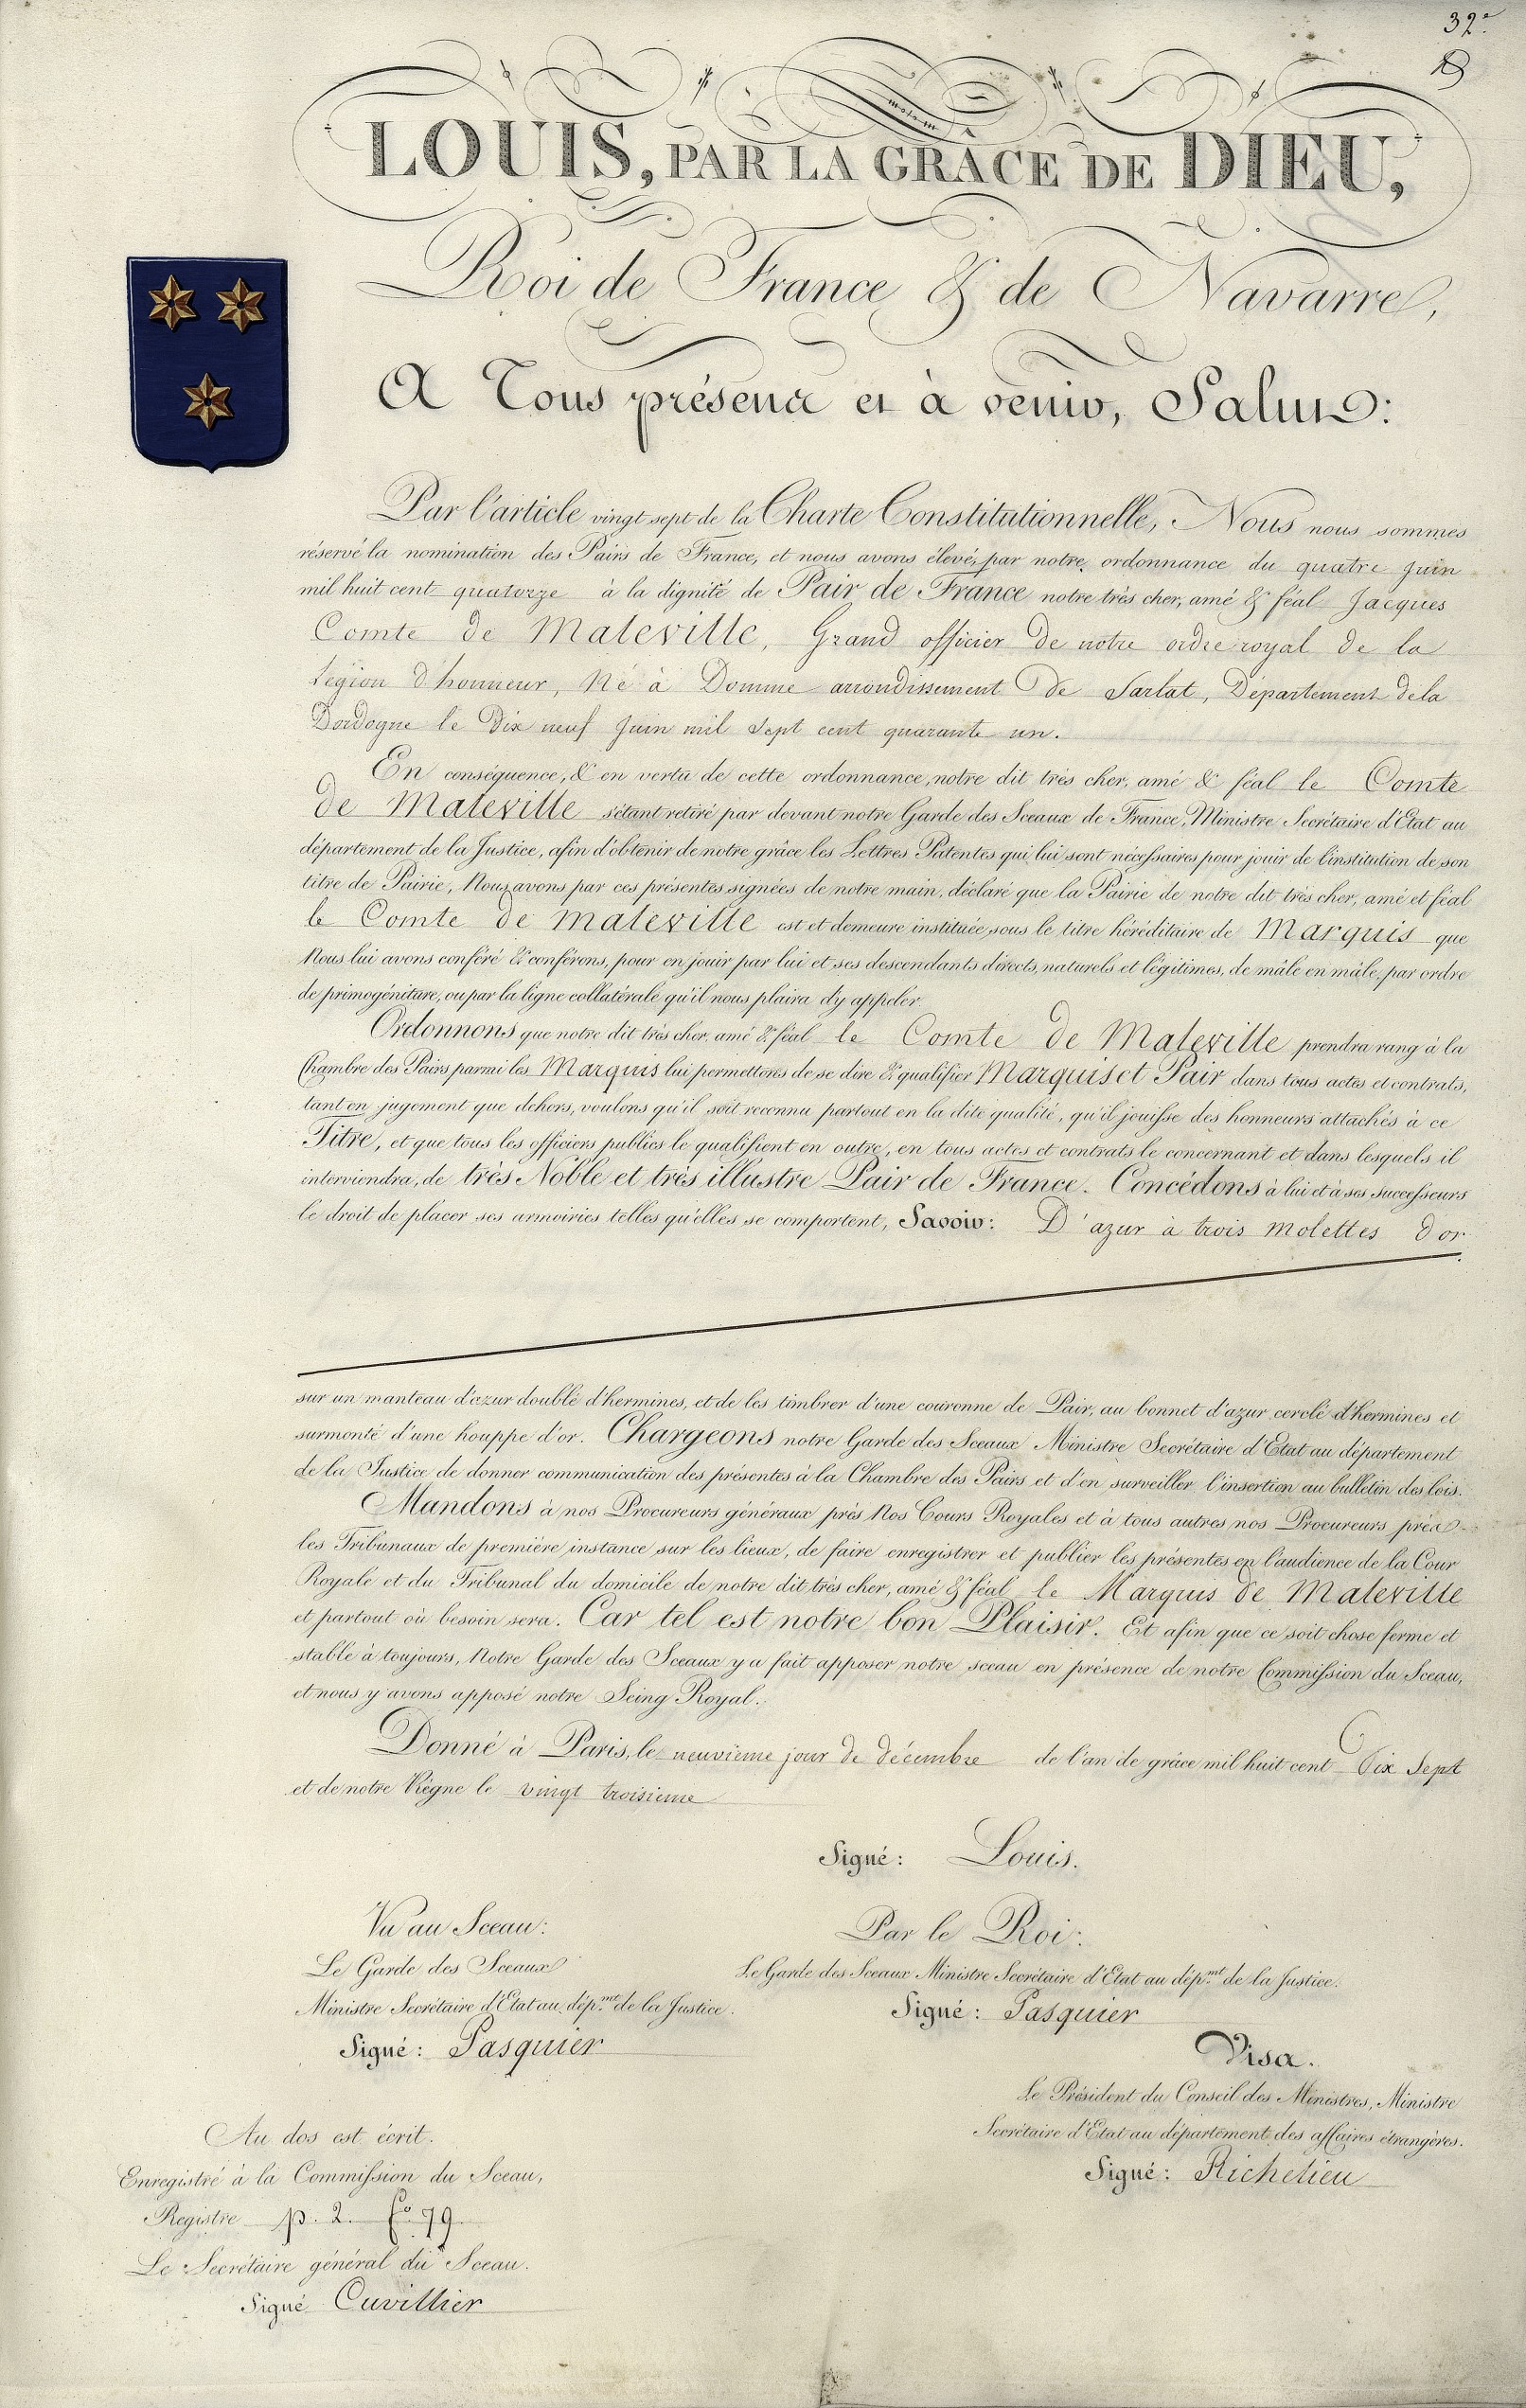 32e
LOUIS, PAR LA GRÂCE DE DIEU,
Roi de France & de Navarre,
A Tous présens et à venir, Salut:
Par l'article vingt sept de la Charte Constitutionnelle, Nous nous sommes
réservé la nomination des Pairs de France, et nous avons élevé, par notre ordonnance du quatre Juin
mil huit cent quatorze à la dignité de Pair de France notre très cher, amé & féal Jacques
Comte de Maleville, Grand officier de notre ordre royal de la
Légion d'honneur, Né à Domme arrondissement de Sarlat, Département de la
Dordogne le Dix neuf Juin mil sept cent quarante un.
En conséquence, & en vertu de cette ordonnance, notre dit très cher, amé & féal le Comte
de Maleville s'étant retiré par devant notre Garde des Sceaux de France, Ministre Secrétaire d'Etat au
département de la Justice, afin d'obtenir de notre grâce les Lettres Patentes qui lui sont nécessaires pour jouir de l'institution de son
titre de Pairie, Nous avons par ces présentes signées de notre main, déclaré que la Pairie de notre dit très cher, amé et féal
le Comte de Maleville est et demeure instituée sous le titre héréditaire de Marquis que
Nous lui avons conféré & conférons, pour en jouir par lui et ses descendants directs, naturels et légitimes, de mâle en mâle, par ordre
de primogéniture, ou par la ligne collatérale qu'il nous plaira d'y appeler.
Ordonnons que notre dit très cher, amé & féal le Comte de Maleville prendra rang à la
Chambre des Pairs parmi les Marquis lui permettons de se dire & qualifier Marquis et Pair dans tous actes et contrats,
tant en jugement que dehors, voulons qu'il soit reconnu partout en la dite qualité, qu'il jouisse des honneurs attachés à ce
Titre, et que tous les officiers publics le qualifient en outre, en tous actes et contrats le concernant et dans lesquels il
interviendra, de très Noble et très illustre Pair de France. Concédons à lui et à ses successeurs
le droit de placer ses armoiries telles qu'elles se comportent, Savoir: D'azur à trois molettes d'or.
sur un manteau d'azur doublé d'hermines, et de les timbrer d'une couronne de Pair, au bonnet d'azur cerclé d'hermines et
surmonté d'une houppe d'or. Chargeons notre Garde des Sceaux Ministre Secrétaire d'Etat au département
de la Justice de donner communication des présentes à la Chambre des Pairs et d'en surveiller l'insertion au bulletin des lois.
Mandons à nos Procureurs généraux près Nos Cours Royales et à tous autres nos Procureurs près
les Tribunaux de première instance sur les lieux, de faire enregistrer et publier les présentes en l'audience de la Cour
Royale et du Tribunal du domicile de notre dit très cher, amé & féal le Marquis de Maleville
et partout où besoin sera. Car tel est notre bon Plaisir. Et afin que ce soit chose ferme et
stable à toujours, Notre Garde des Sceaux y a fait apposer notre sceau en présence de notre Commission du Sceau,
et nous y avons apposé notre Seing Royal.
Donné à Paris, le neuvieme jour de décembre de l'an de grâce mil huit cent Dix Sept
et de notre Règne le vingt troisieme
Signé: Louis.
Vu au Sceau:
Le Garde des Sceaux
Ministre Secrétaire d'Etat au dép.mt de la Justice.
Signé: Pasquier
Par le Roi:
Le Garde des Sceaux Ministre Secrétaire d'Etat au dép.mt de la Justice.
Signé: Pasquier
Visa.
Le Président du Conseil des Ministres, Ministre
Secrétaire d'Etat au département des affaires étrangères.
Signé: Richelieu
Au dos est écrit.
Enregistré à la Commission du Sceau,
Registre p. 2. fo. 79
Le Secrétaire général du Sceau.
Signé Cuvillier